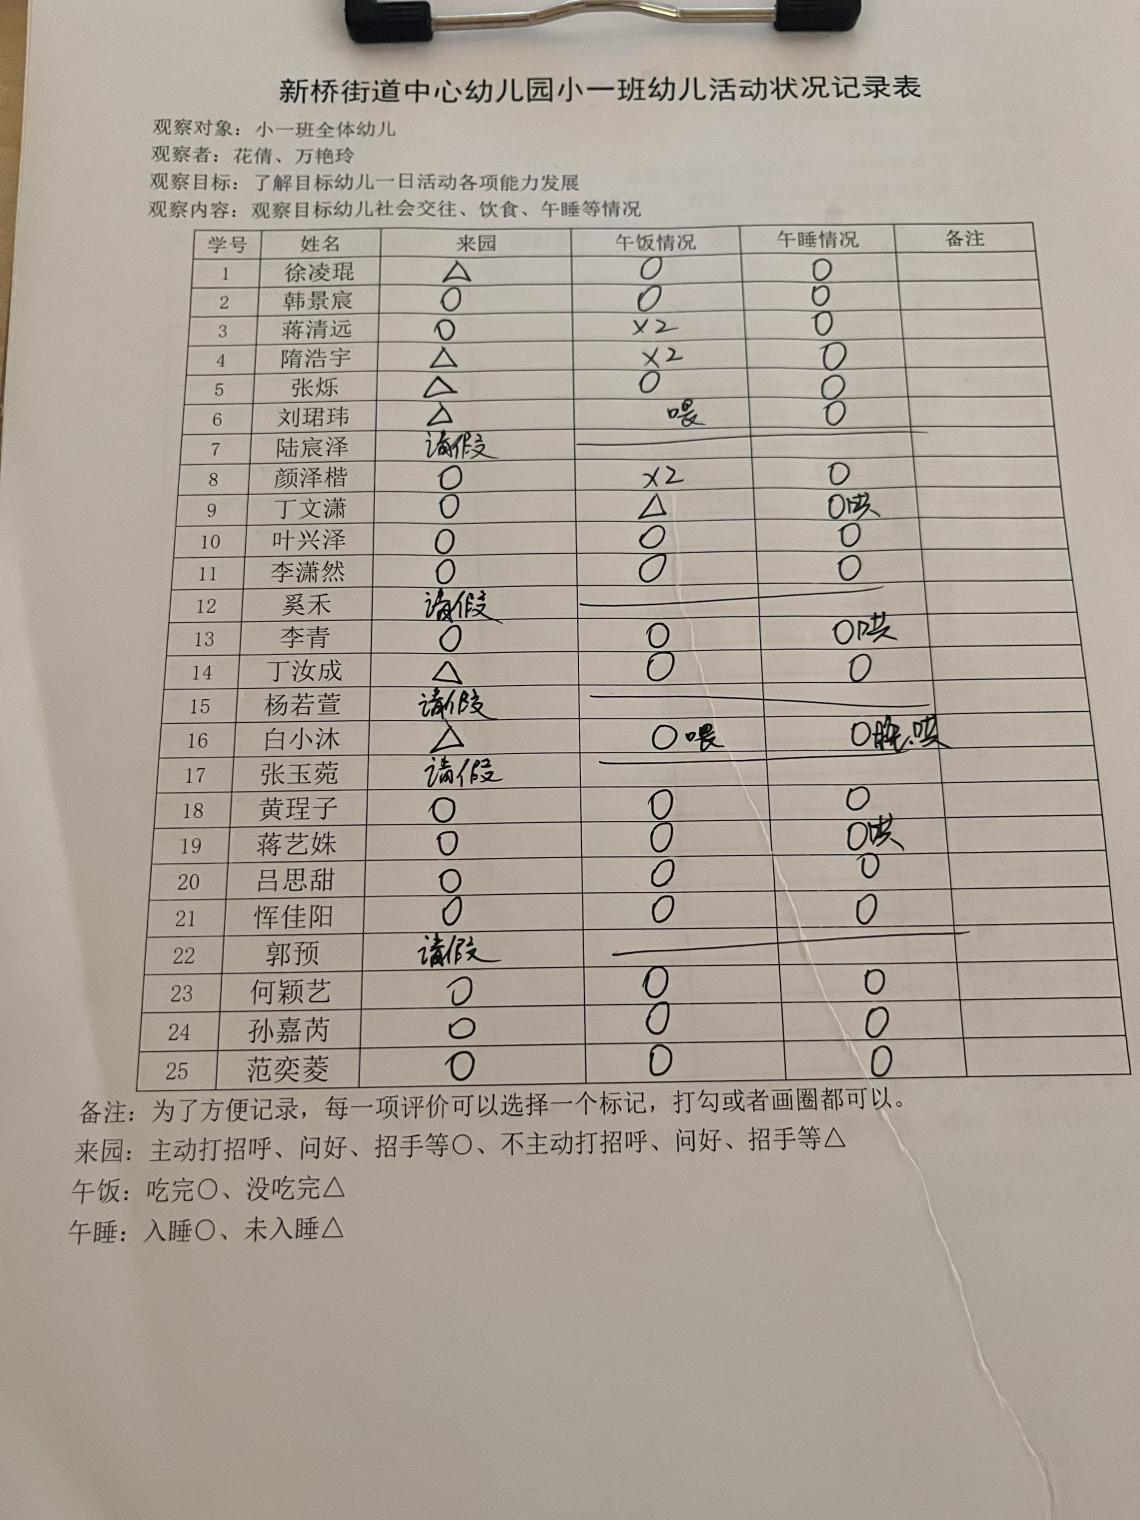 新桥街道中心幼儿园小一班幼儿活动状况记录表
观察对象：小一班全体幼儿
观察者：花倩、万艳玲
观察目标：了解目标幼儿一日活动各项能力发展
观察内容：观察目标幼儿社会交往、饮食、午睡等情况
学号 姓名 来园 午饭情况 午睡情况 备注
1 徐凌琨 △ ○ ○
2 韩景宸 ○ ○ ○
3 蒋清远 ○ ×2 ○
4 隋浩宇 △ ×2 ○
5 张烁 △ ○ ○
6 刘珺玮 △ 喂 ○
7 陆宸泽 请假
8 颜泽楷 ○ ×2 ○
9 丁文潇 ○ △ ○哄
10 叶兴泽 ○ ○ ○
11 李潇然 ○ ○ ○
12 奚禾 请假
13 李青 ○ ○ ○哄
14 丁汝成 △ ○ ○
15 杨若萱 请假
16 白小沐 △ ○喂 ○晚.哄
17 张玉菀 请假
18 黄珵子 ○ ○ ○
19 蒋艺姝 ○ ○ ○哄
20 吕思甜 ○ ○ ○
21 恽佳阳 ○ ○ ○
22 郭预 请假
23 何颖艺 ○ ○ ○
24 孙嘉芮 ○ ○ ○
25 范奕菱 ○ ○ ○
备注：为了方便记录，每一项评价可以选择一个标记，打勾或者画圈都可以。
来园：主动打招呼、问好、招手等○、不主动打招呼、问好、招手等△
午饭：吃完○、没吃完△
午睡：入睡○、未入睡△